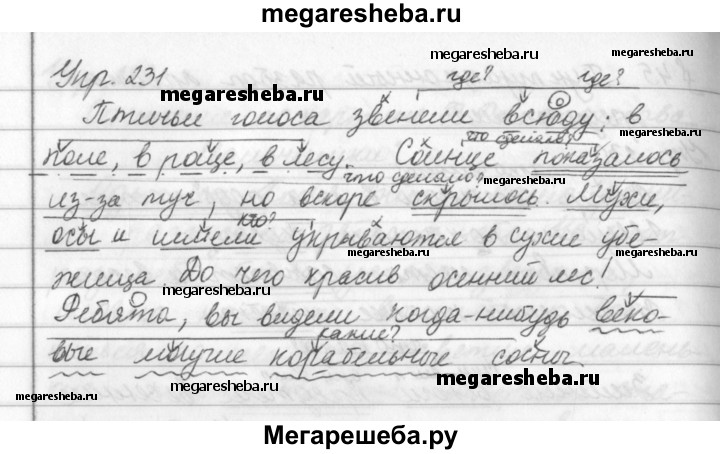 megaresheba.ru
Упр. 231 где? где?
Птичьи голоса звенели всюду: в
что сделало?
поле, в роще, в лесу. Солнце показалось
что сделало?
из-за туч, но вскоре скрылось. Мухи,
кто?
осы и шмели укрываются в сухие убе-
жища. До чего красив осенний лес!
Ребята, вы видели когда-нибудь веко-
какие?
вые могучие корабельные сосны
www.megaresheba.ru
megaresheba.ru
megaresheba.ru
megaresheba.ru
megaresheba.ru
megaresheba.ru
www.megaresheba.ru
megaresheba.ru
megaresheba.ru
megaresheba.ru
Мегарешеба.ру